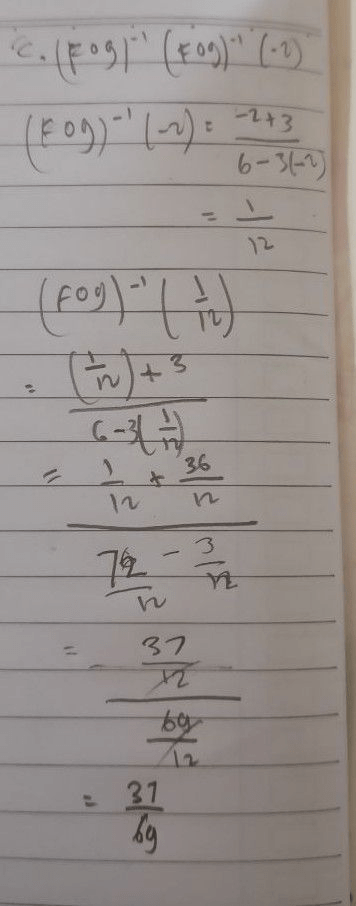 c. (fog)⁻¹ (fog)⁻¹ (-2)
(fog)⁻¹ (-2) = -2+3 / 6-3(-2)
= 1/12
(fog)⁻¹ (1/12)
= (1/12) + 3 / 6-3(1/12)
= 1/12 + 36/12 / 72/12 - 3/12
= 37/12 / 69/12
= 37/69